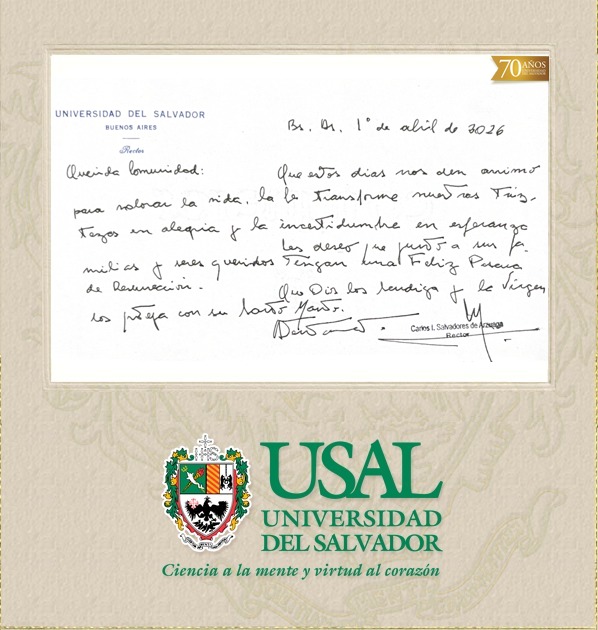 70 AÑOS
UNIVERSIDAD DEL SALVADOR
BUENOS AIRES
Rector
Bs. As. 1° de abril de 2026
Querida Comunidad:
Que estos días nos den animo
para valorar la vida, la fe transforme nuestras tris-
tezas en alegria y la incertidumbre en esperanza
Les deseo que junto a sus fa
milias y seres queridos tengan una Feliz Pascua
de Resurrección.
Que Dios los bendiga y la Virgen
los proteja con su Santo Manto.
Carlos I. Salvadores de Arzuaga
Rector
USAL
UNIVERSIDAD
DEL SALVADOR
Ciencia a la mente y virtud al corazón